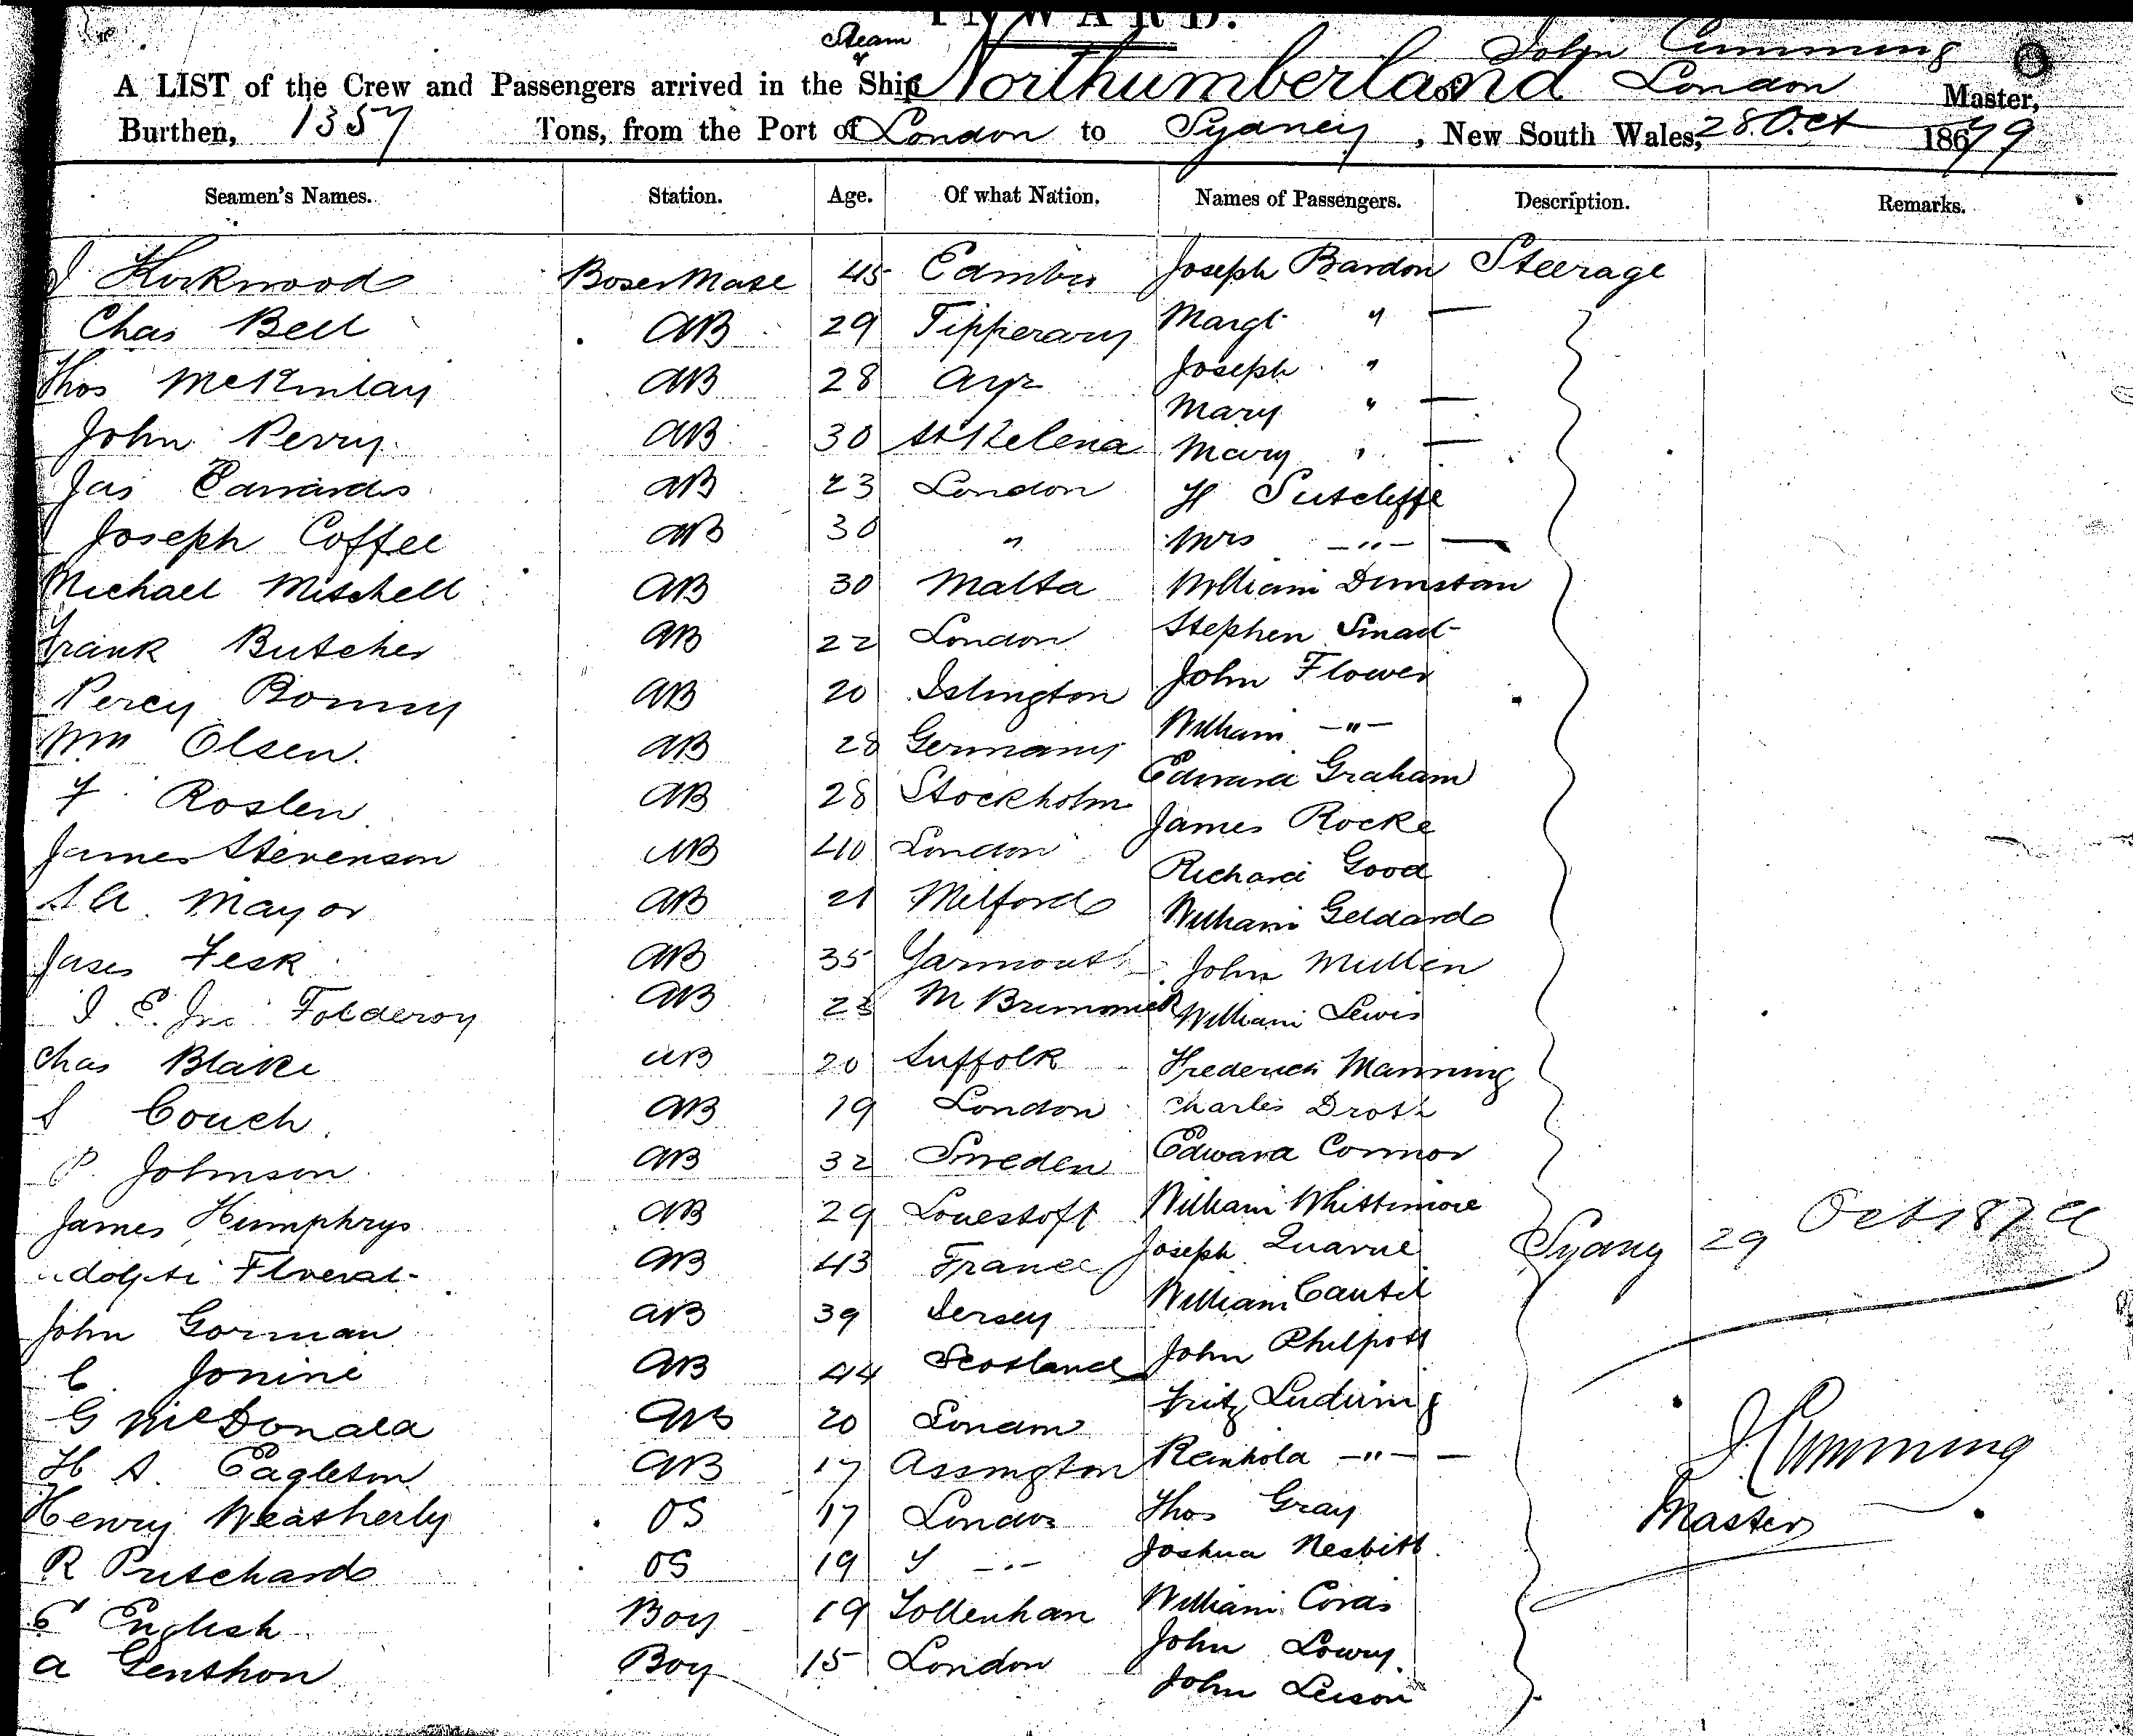 INWARD.
Steam
A LIST of the Crew and Passengers arrived in the Ship Northumberland of London John Cumming Master,
Burthen, 1357 Tons, from the Port of London to Sydney, New South Wales, 28 Oct 1879
Seamen's Names. Station. Age. Of what Nation. Names of Passengers. Description. Remarks.
J Kirkwood Bosen Mate 45 Edinbro Joseph Bardon Steerage
Chas Bell AB 29 Tipperary Margt " —
Thos McKinlay AB 28 Ayr Joseph "
Mary " —
John Perry AB 30 St Helena Mary " —
Jas Edwards AB 23 London H Sutcliffe
Joseph Coffee AB 30 " Mrs — " — —
Michael Mitchell AB 30 Malta William Dunstan
Frank Butcher AB 22 London Stephen Smart
Percy Bonny AB 20 Islington John Flower
Wm Olsen AB 28 Germany William — " —
F Roslen AB 28 Stockholm Edward Graham
James Stevenson AB 40 London James Rocke
S A Mayor AB 21 Milford Richard Good
William Geldard
James Fesk AB 35 Yarmouth John Mullen
AB 23 William Lewis
Chas Blake AB 20 Suffolk Frederick Manning
S Couch AB 19 London Charles
P. Johnson AB 32 Sweden Edward Connor
James Humphrys AB 29 Lowestoft William Whittimore
AB 43 France Joseph
John Gorman AB 39 Jersey William
C. AB 44 Scotland John Philpott
G McDonald AB 20 London Fritz Ludwig
H A. Eagleton AB 17 Assington Reinhold — " — —
Henry Weatherly OS 17 London Thos Gray
R Pritchard OS 19 Joshua Nesbitt
C English Boy 19 Tottenham William
A Genthon Boy 15 London John Lowry
John
Sydney 29 Oct 1879
J Cumming
Master